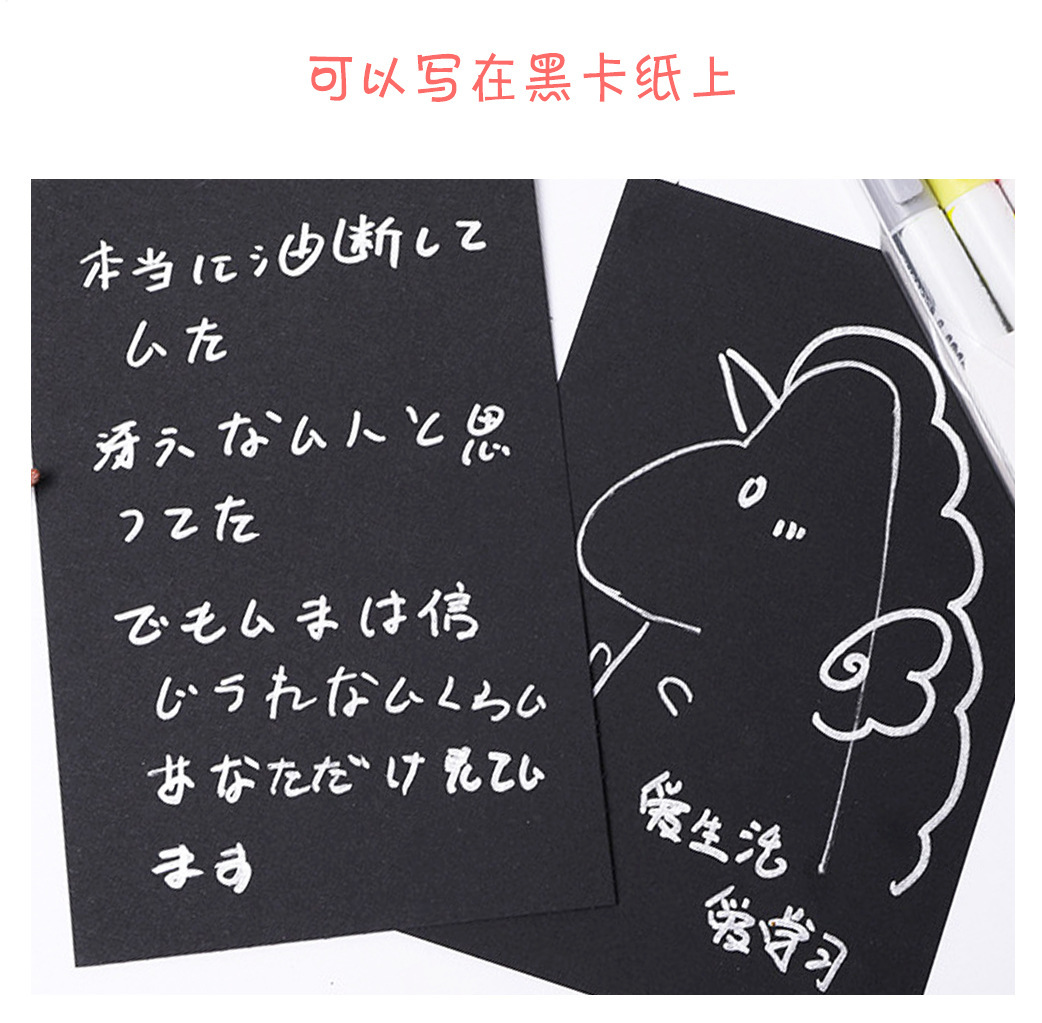 可以写在黑卡纸上
本当に油断して
いた
冴えない人と思
ってた
でもいまは信
じられないくらい
あなただけ見てい
ます
爱生活
爱学习